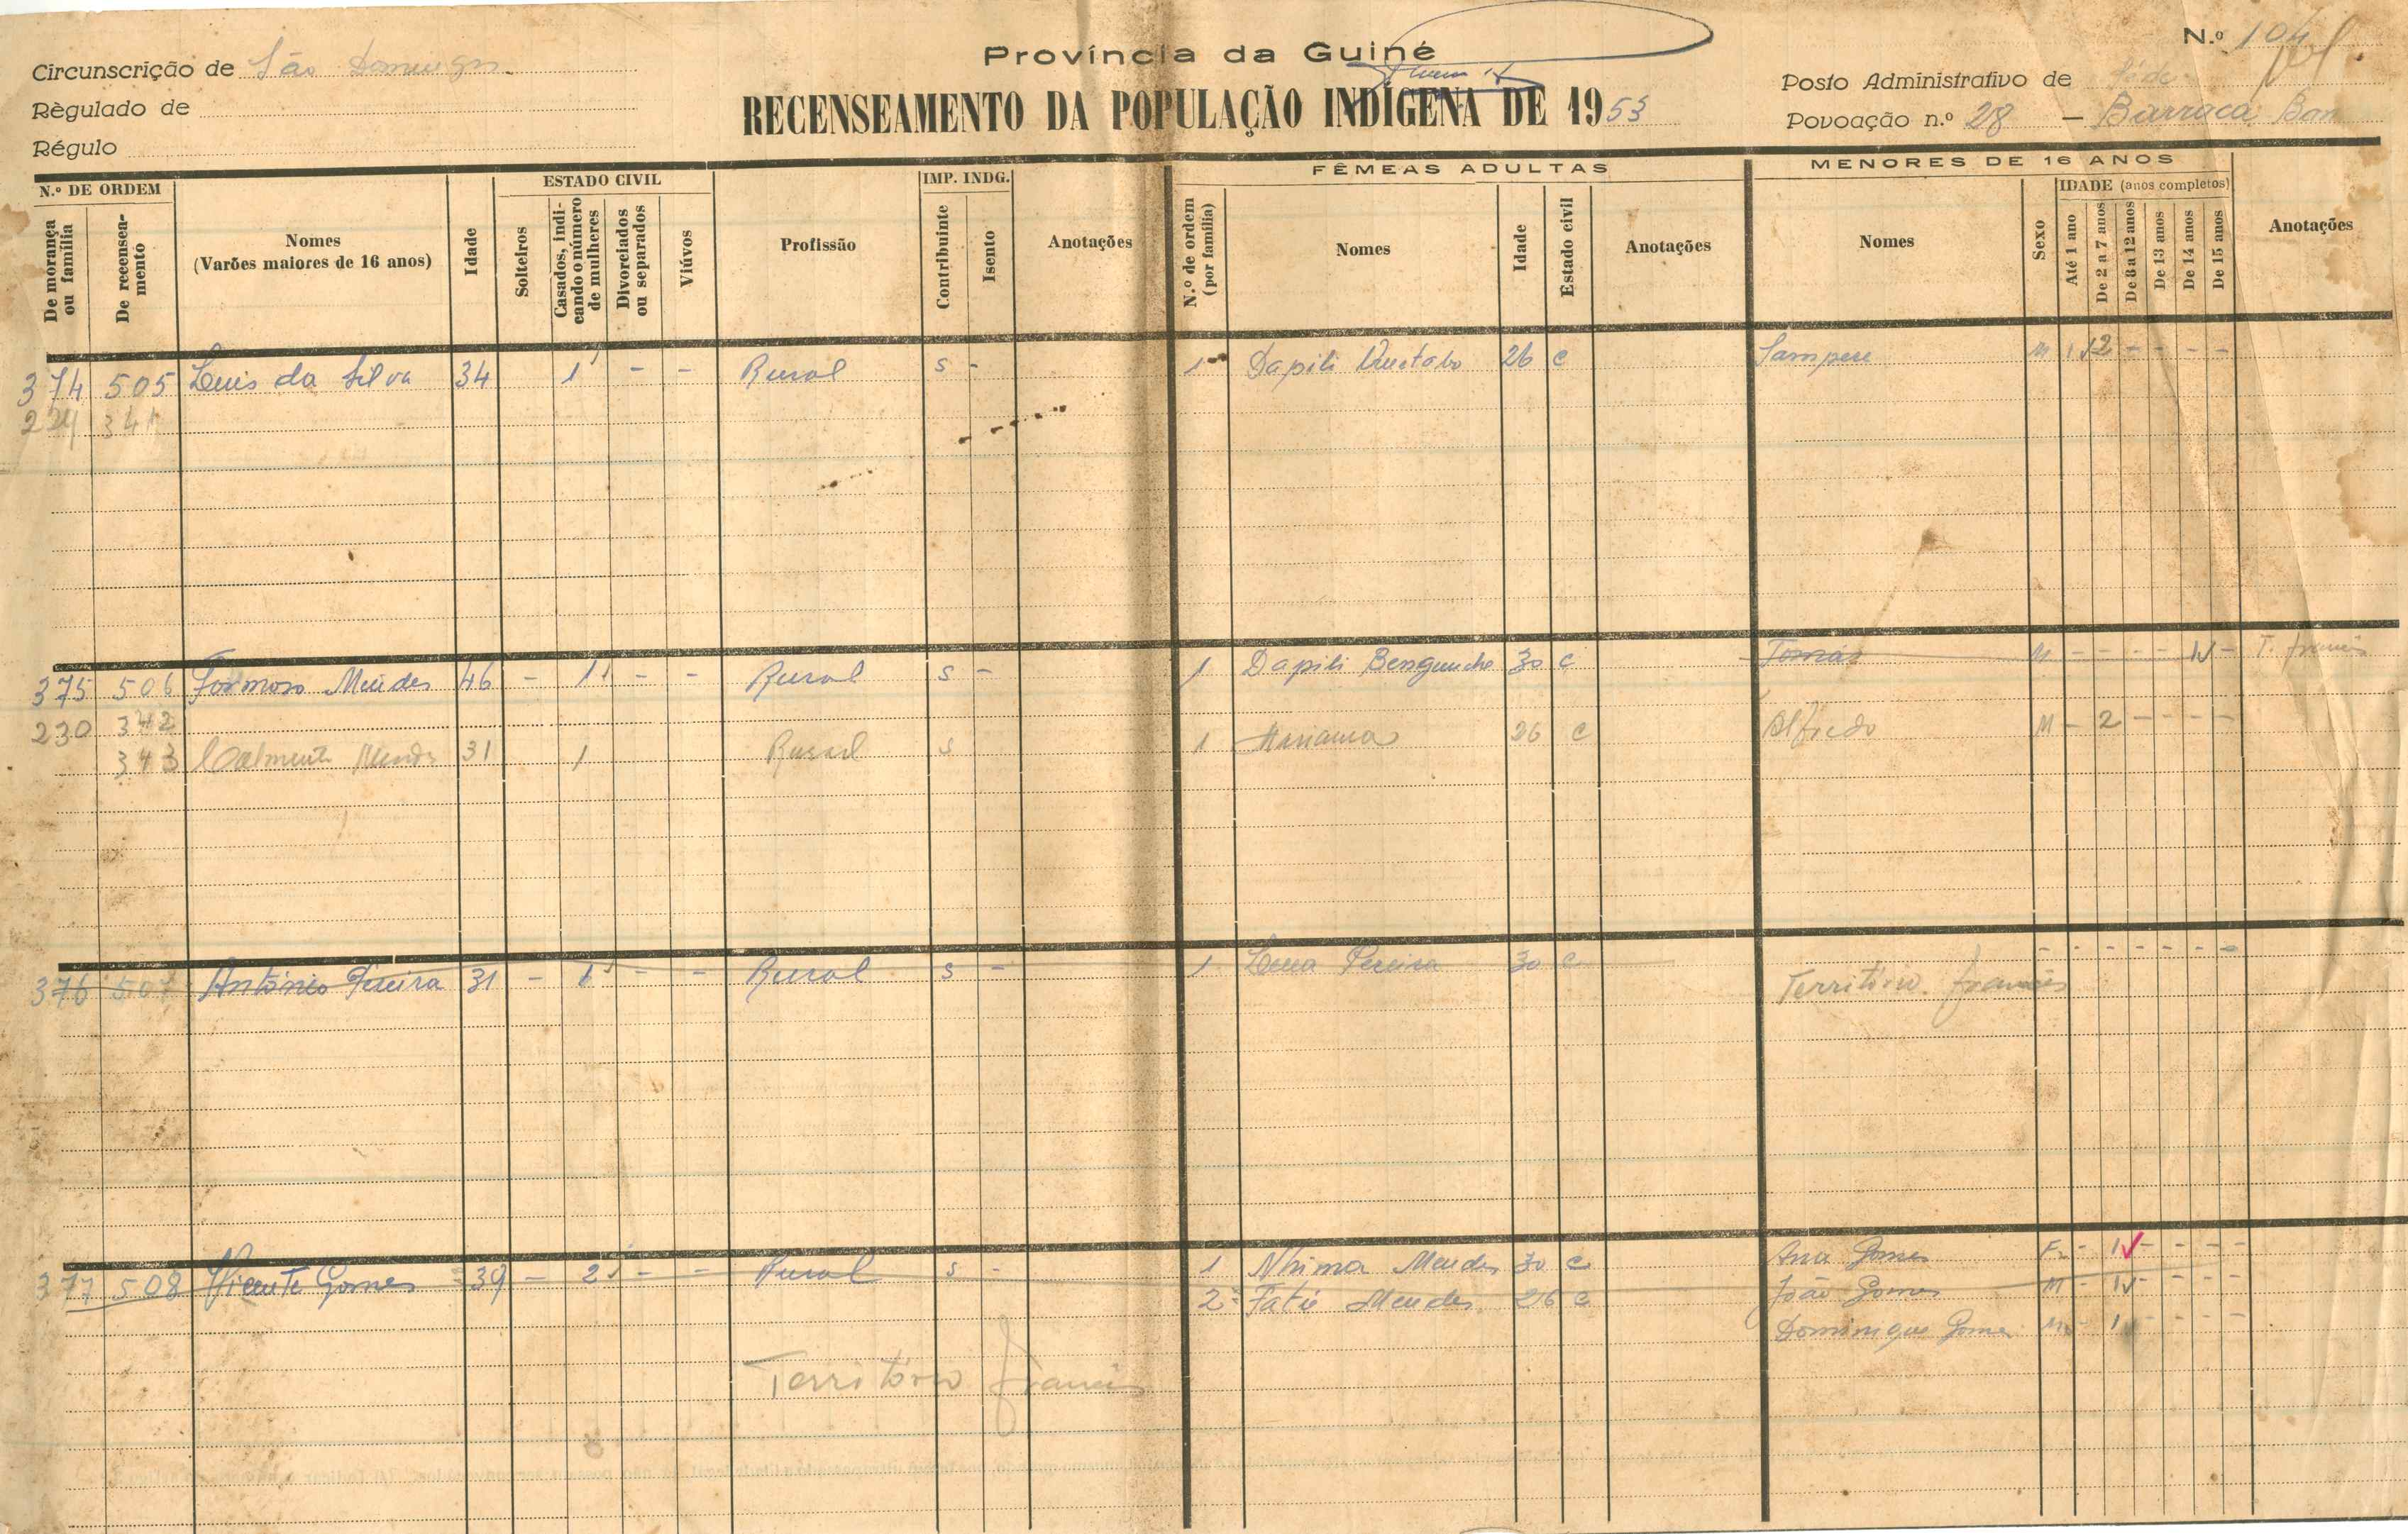 N.º 104
Província da Guiné
Circunscrição de São Domingos
Posto Administrativo de Séde
Règulado de
RECENSEAMENTO DA POPULAÇÃO INDÍGENA DE 1953
Povoação n.º 28 — Barraca
Régulo
N.º DE ORDEM
De morança ou família
De recenseamento
Nomes
(Varões maiores de 16 anos)
Idade
ESTADO CIVIL
Solteiros
Casados, indicando o número de mulheres
Divorciados ou separados
Viúvos
Profissão
IMP. INDG.
Contribuinte
Isento
Anotações
FÊMEAS ADULTAS
N.º de ordem (por família)
Nomes
Idade
Estado civil
Anotações
MENORES DE 16 ANOS
Nomes
Sexo
IDADE (anos completos)
Até 1 ano
De 2 a 7 anos
De 8 a 12 anos
De 13 anos
De 14 anos
De 15 anos
Anotações
374 505 Luis da Silva 34 1 - - Rural S - 1 Dapili 26 C Sampere M 1 2 - - - -
229 341
375 506 Formoso Mendes 46 - 1 - - Rural S - 1 Dapili Bengunche 30 C Tomás M - - - - 1 - T. francês
230 342 Alfredo M - 2 - - - -
343 Mendes 31 1 Rural S 1 Mariama 26 C
376 507 António Pereira 31 - 1 - - Rural S - 1 Pereira 30 C - - - - - - -
Território francês
377 508 Vicente Gomes 39 - 2 - - Rural S - 1 Nhima Mendes 30 C Ana Gomes F - 1 - - - -
2 Fatié Mendes 26 C João Gomes M - 1 - - - -
Domingos Gomes M - 1 - - - -
Território francês